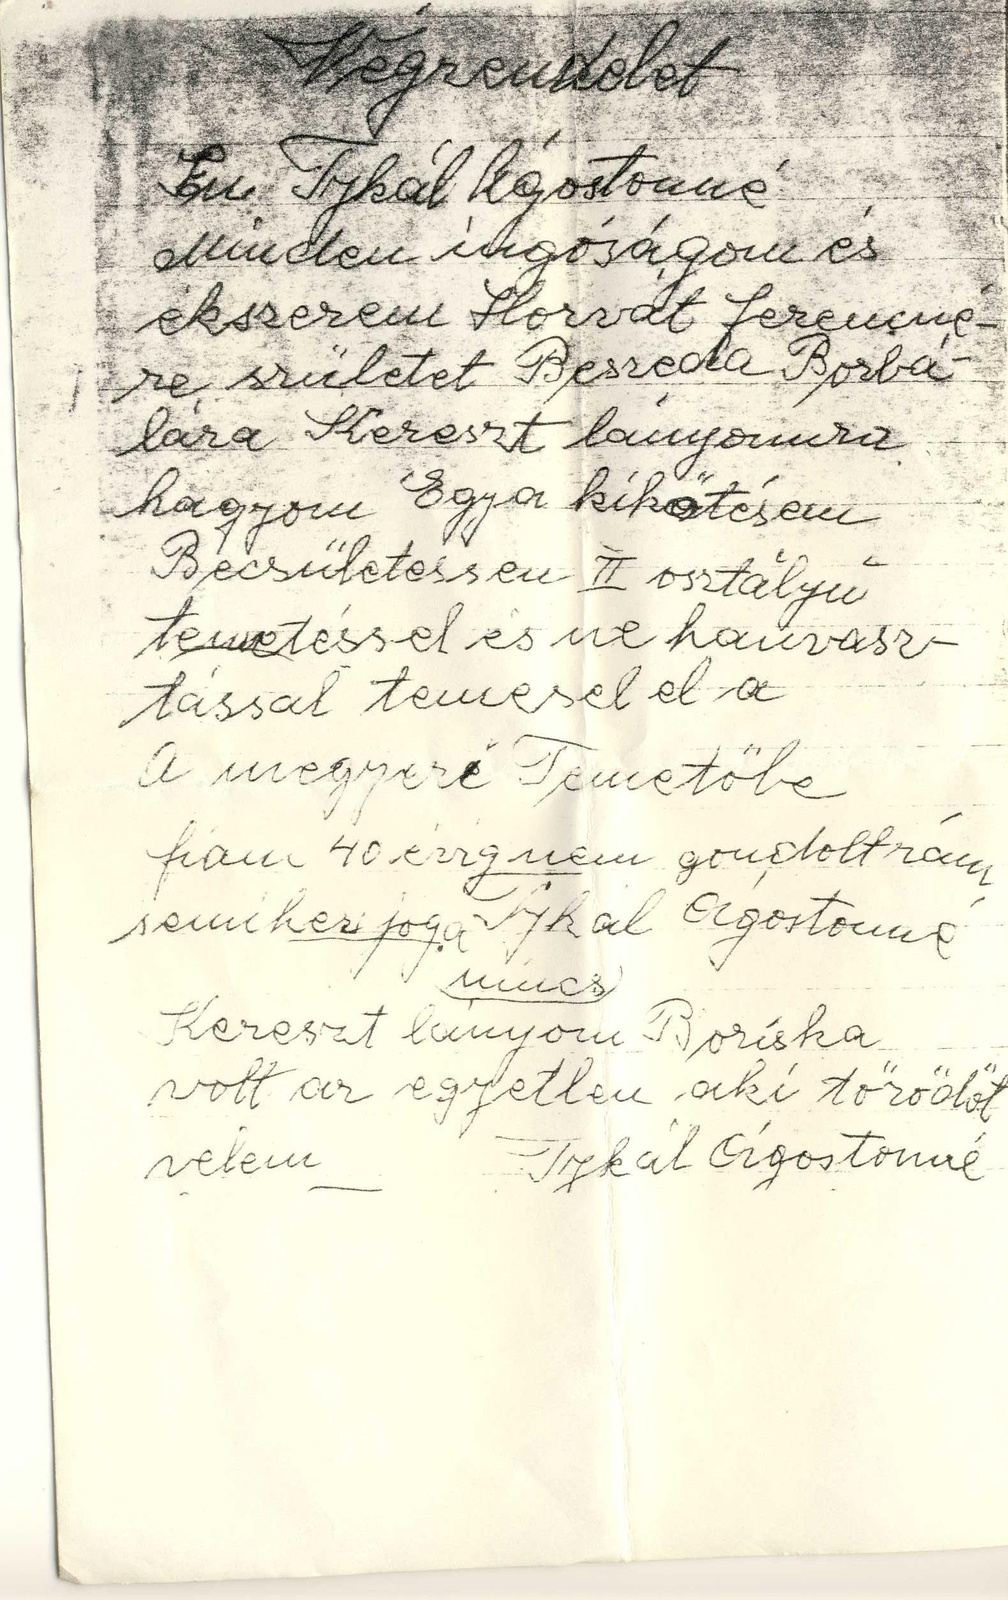 Végrendelet
Én Tykál Ágostonné
Minden ingóságom és
ékszerem Horvát Ferencné-
re született Beszeda Borbá-
lára Kereszt lányomra
hagyom Egya kikötésem
Becsületessen II osztályú
temetéssel és ne hanvasz-
tással temesel el a
A megyeri Temetőbe
fiam 40 évig nem gondolt rám
semihez joga Tykál Ágostonné
nincs
Kereszt lányom Boriska
volt az egyetlen aki törödöt
velem Tykál Ágostonné